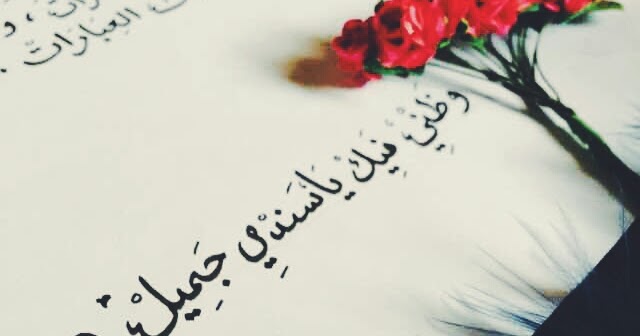 العِبَارَات .
وظَنِّي فِيكَ يَا سَنَدِي جَمِيلْ